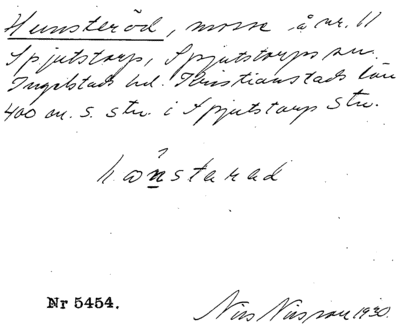 Hunsteröd, mosse å nr. 11
Spjutstorp, Spjutstorps sn.
Ingelstads hd. Kristianstads län
400 m. s. str. i Spjutstorp Stn.
hånstarad
Nr 5454.
Nils Nilsson 1930.